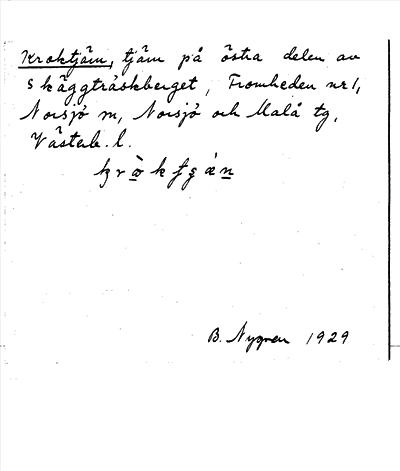 Kroktjärn, tjärn på östra delen av
Skäggträskberget, Fromheden nr 1,
Norsjö sn, Norsjö och Malå tg,
Västerb. l.
B. Nygren 1929